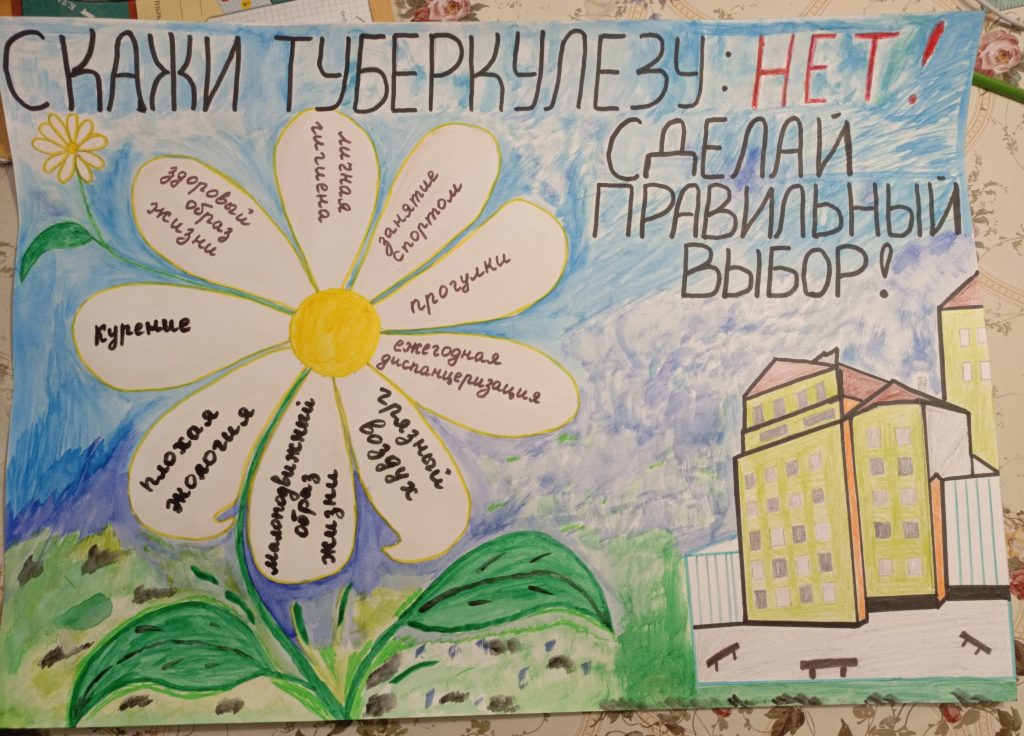 СКАЖИ ТУБЕРКУЛЕЗУ: НЕТ!
СДЕЛАЙ
ПРАВИЛЬНЫЙ
ВЫБОР!
здоровый
образ
жизни
личная
гигиена
занятие
спортом
прогулки
ежегодная
диспанцеризация
грязный
воздух
малоподвижный
образ
жизни
плохая
экология
курение